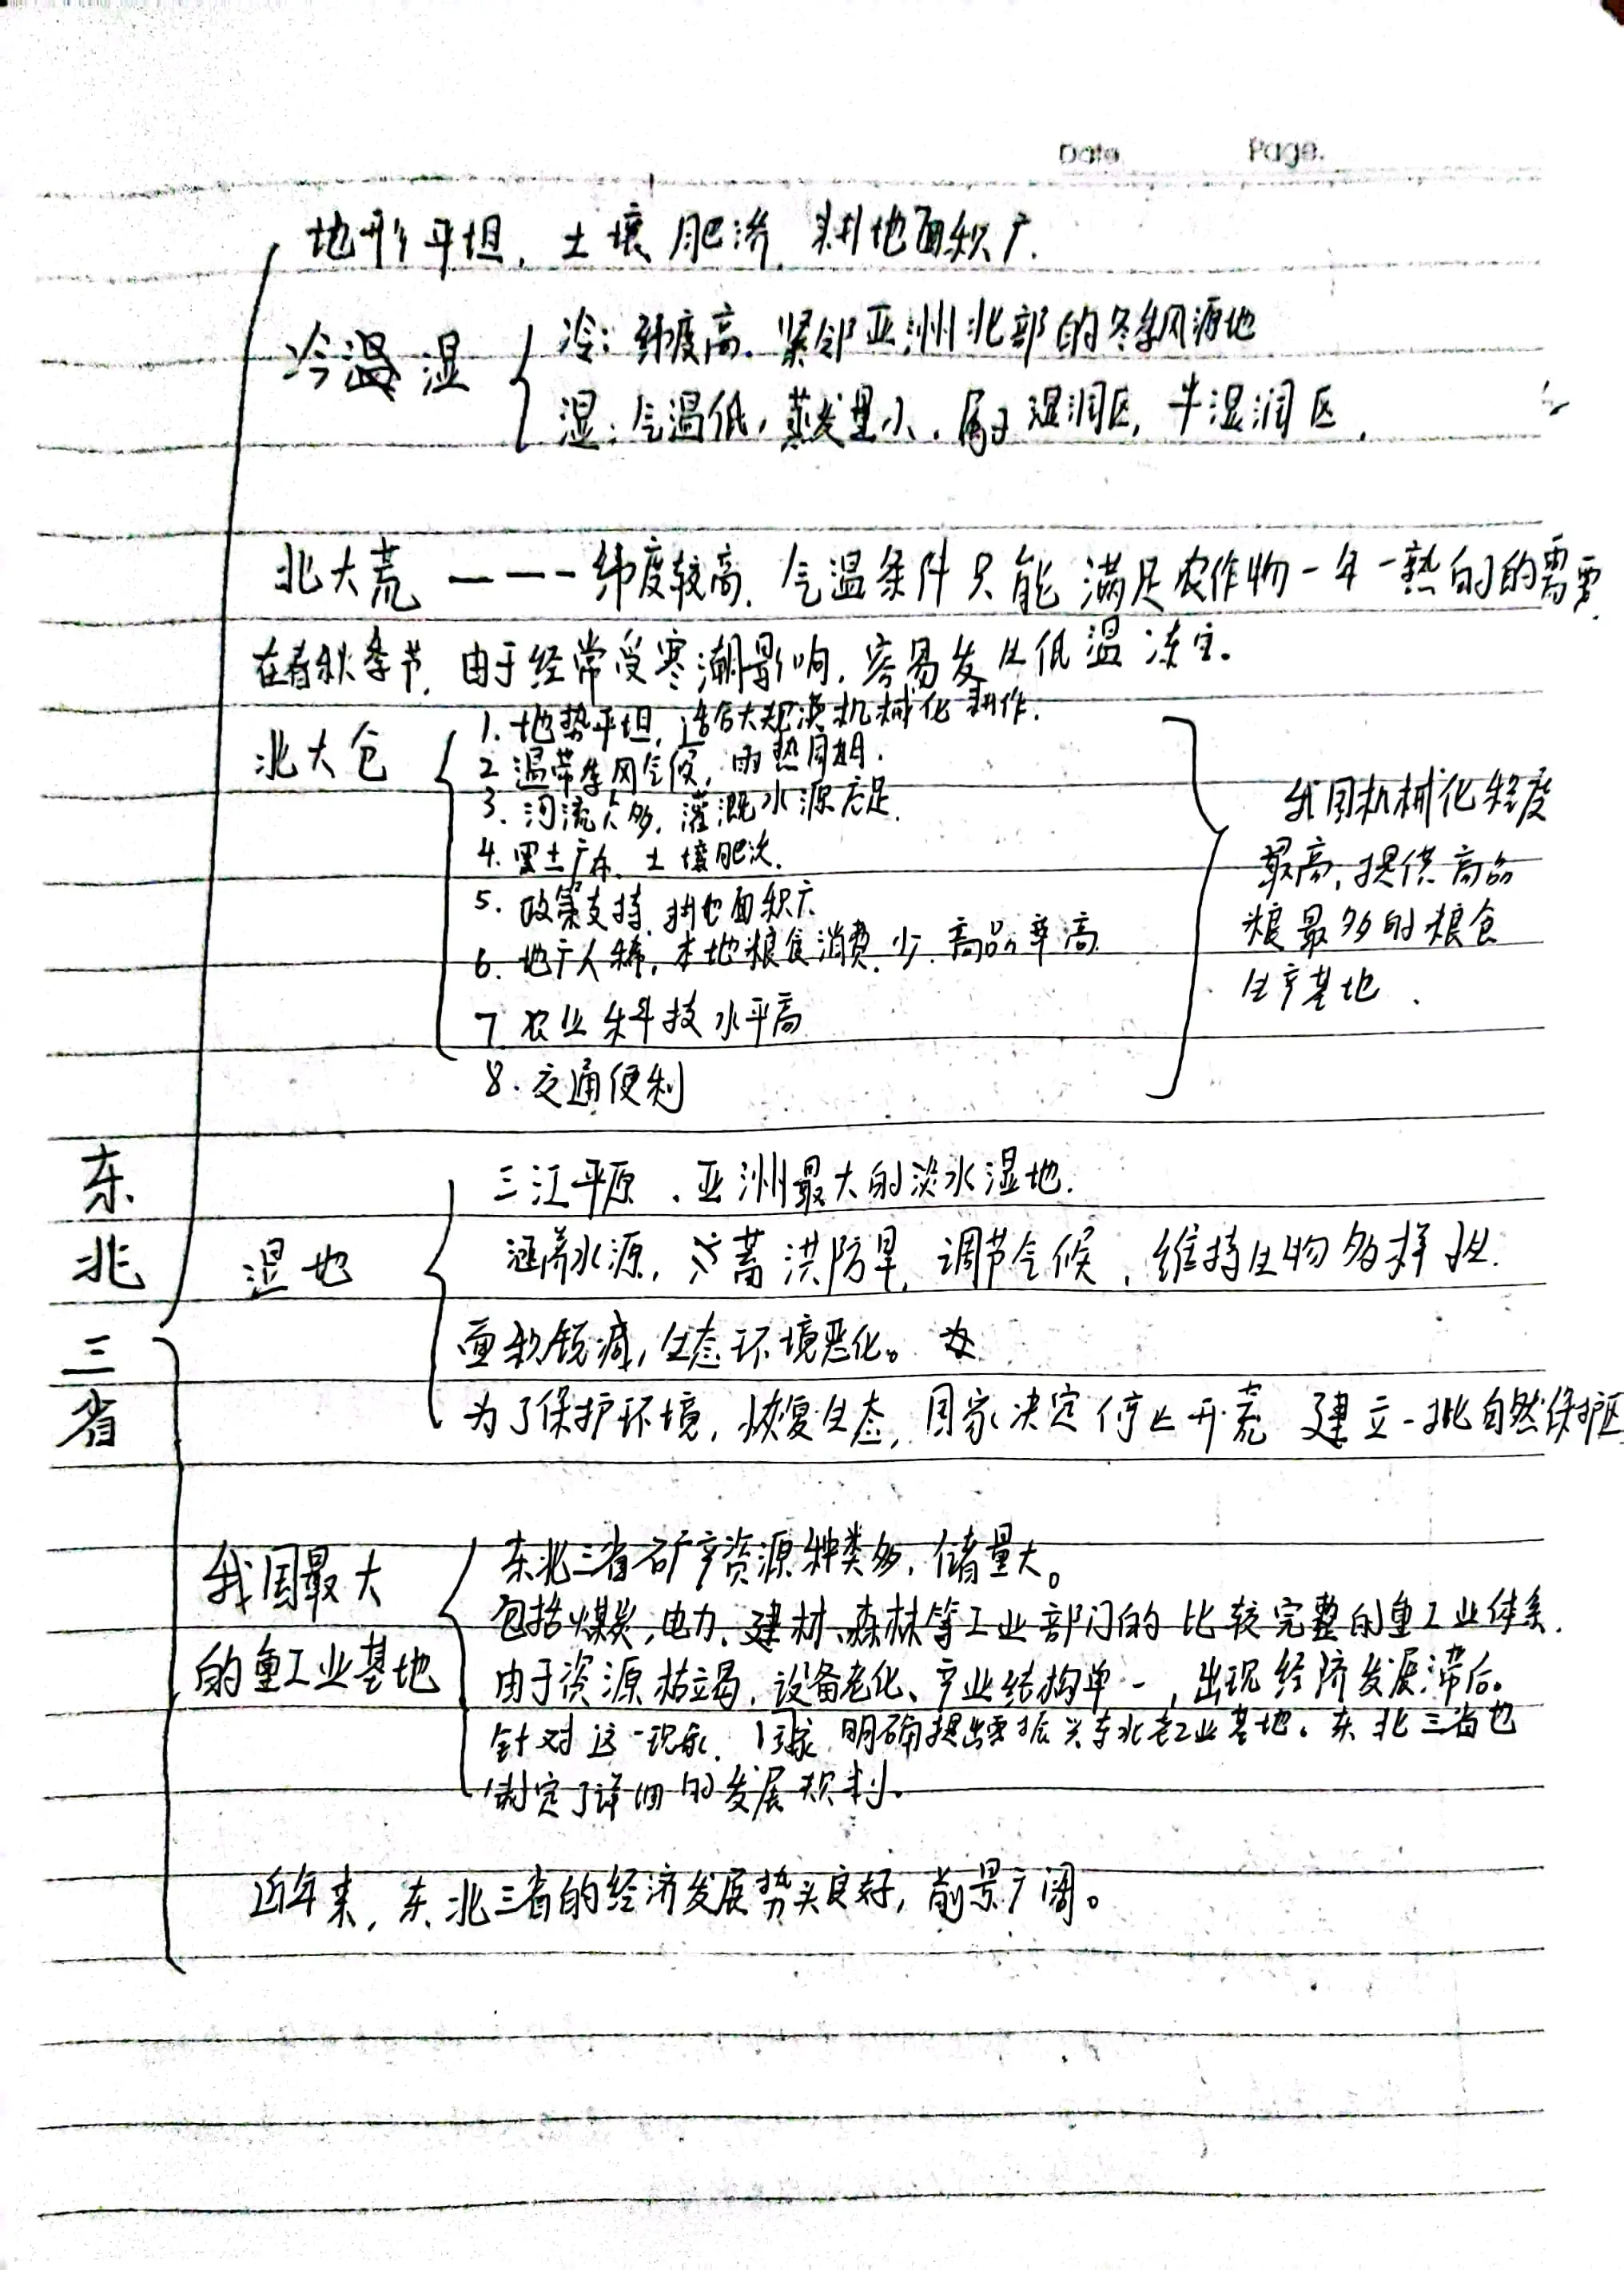 Date Page.
地形平坦,土壤肥沃,耕地面积广.
冷湿
冷:纬度高.紧邻亚洲北部的冬季风源地
湿:气温低,蒸发量小.属于湿润区,半湿润区.
北大荒 ———纬度较高.气温条件只能满足农作物一年一熟的的需要.
在春秋季节,由于经常受寒潮影响.容易发生低温冻害.
北大仓
1.地势平坦,适合大规模机械化耕作.
2 温带季风气候,雨热同期.
3.河流众多,灌溉水源充足.
4.黑土广布、土壤肥沃.
5.政策支持,耕地面积广
6.地广人稀,本地粮食消费少.商品率高
7.农业科技水平高
8.交通便利
我国机械化程度
最高,提供商品
粮最多的粮食
生产基地.
东北三省
湿地
三江平原.亚洲最大的淡水湿地.
涵养水源,蓄洪防旱,调节气候,维持生物多样性.
面积锐减,生态环境恶化。
为了保护环境,恢复生态,国家决定停止开荒 建立一批自然保护区
我国最大
的重工业基地
东北三省矿产资源种类多,储量大。
包括煤炭,电力、建材、森林等工业部门的比较完整的重工业体系.
由于资源枯竭,设备老化、产业结构单一,出现经济发展滞后。
针对这一现象,国家明确提出要振兴东北老工业基地。东北三省也
制定了详细的发展规划。
近年来,东北三省的经济发展势头良好,前景广阔。